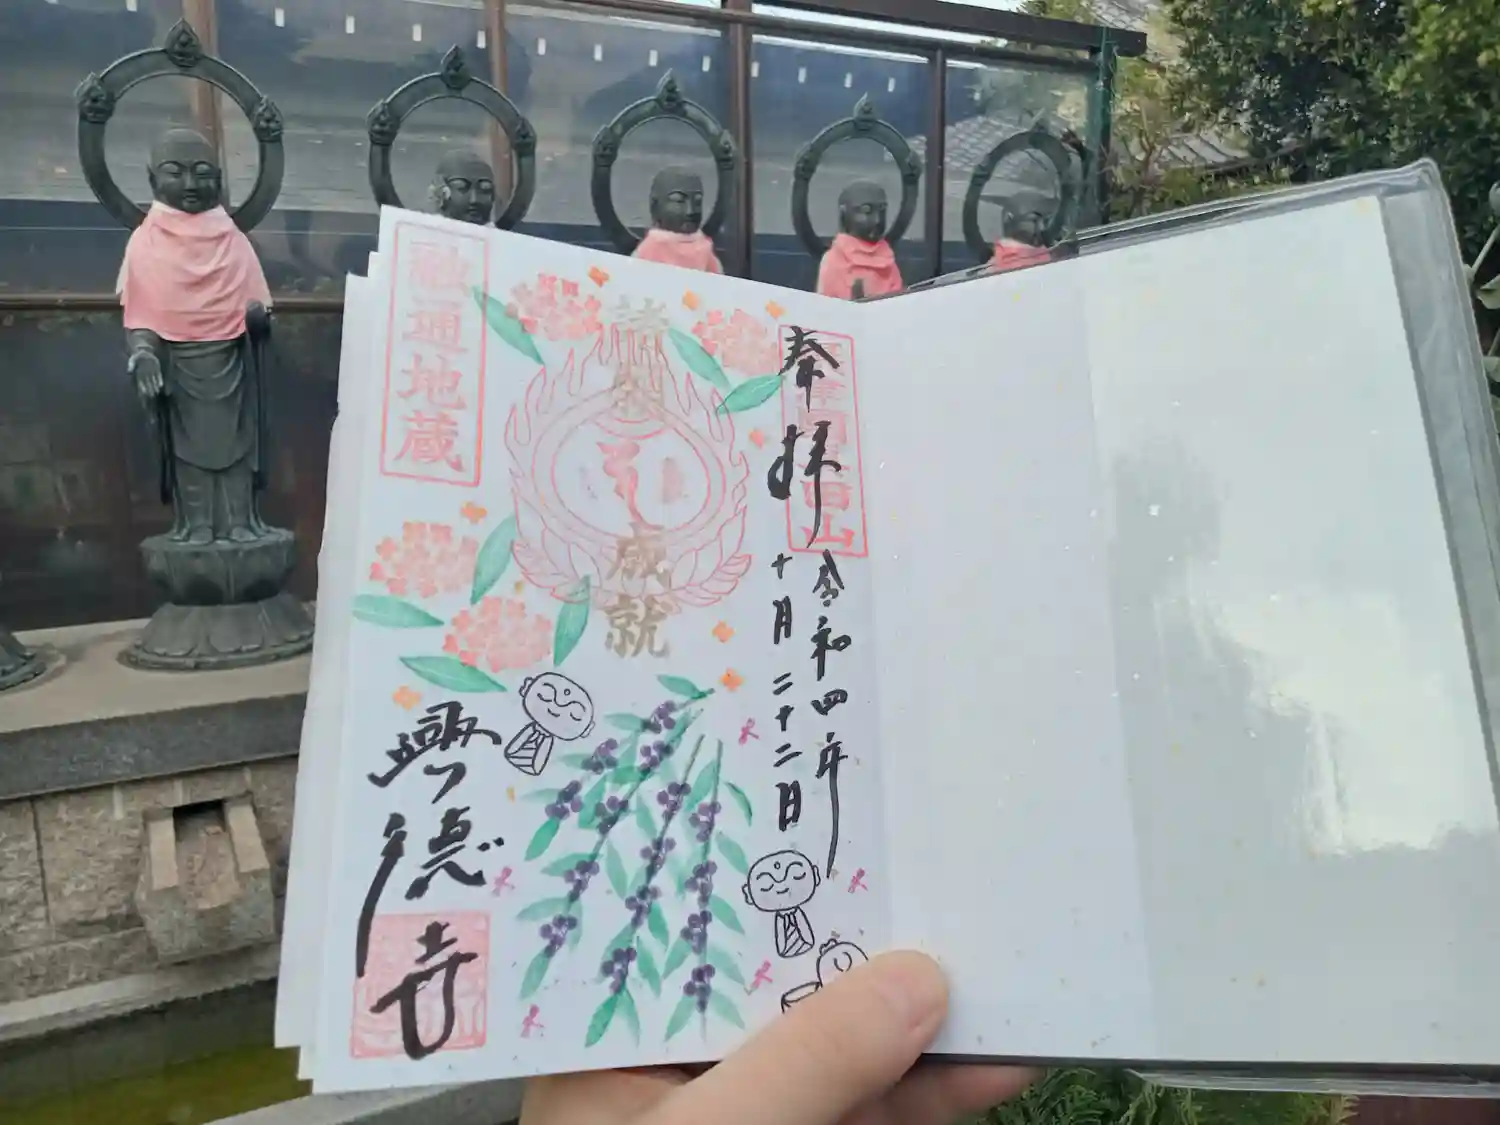 奉拝
令和四年
十月二十二日
諸願成就
融通地蔵
興徳寺